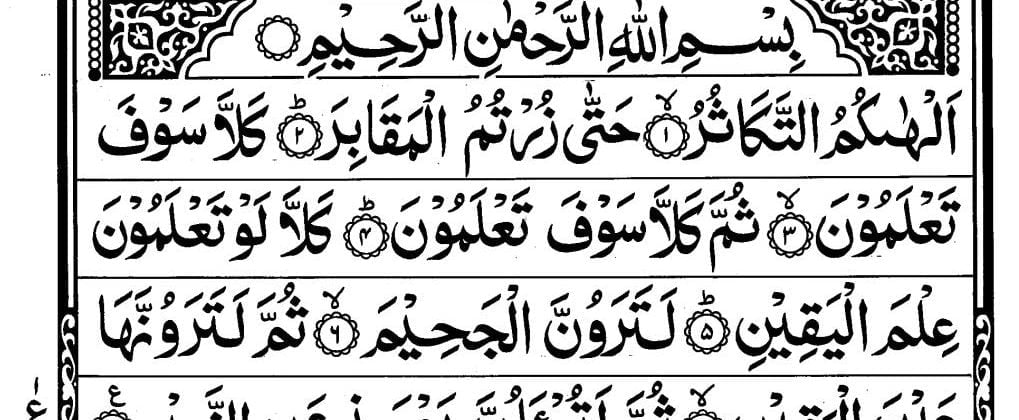 بِسْمِ اللهِ الرَّحْمٰنِ الرَّحِيْمِ
اَلْهٰىكُمُ التَّكَاثُرُ ۙ‏﴿۱﴾ حَتّٰى زُرْتُمُ الْمَقَابِرَ ؕ‏﴿۲﴾ كَلَّا سَوْفَ
تَعْلَمُوْنَ ۙ‏﴿۳﴾ ثُمَّ كَلَّا سَوْفَ تَعْلَمُوْنَ ؕ‏﴿۴﴾ كَلَّا لَوْ تَعْلَمُوْنَ
عِلْمَ الْيَقِيْنِ ؕ‏﴿۵﴾ لَتَرَوُنَّ الْجَحِيْمَ ۙ‏﴿۶﴾ ثُمَّ لَتَرَوُنَّهَا